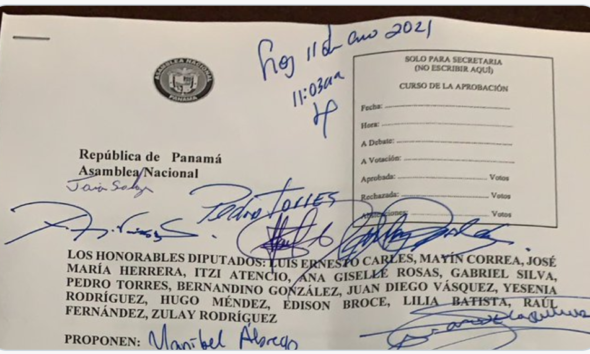 Hoy 11 de ano 2021
11:03am
ASAMBLEA NACIONAL
PANAMÁ
SOLO PARA SECRETARIA
(NO ESCRIBIR AQUÍ)
CURSO DE LA APROBACIÓN
Fecha:
Hora:
A Debate:
A Votación:
Aprobada: Votos
Rechazada: Votos
Votos
República de Panamá
Asamblea Nacional
Pedro TORRES
LOS HONORABLES DIPUTADOS: LUIS ERNESTO CARLES, MAYÍN CORREA, JOSÉ
MARÍA HERRERA, ITZI ATENCIO, ANA GISELLE ROSAS, GABRIEL SILVA,
PEDRO TORRES, BERNANDINO GONZÁLEZ, JUAN DIEGO VÁSQUEZ, YESENIA
RODRÍGUEZ, HUGO MÉNDEZ, EDISON BROCE, LILIA BATISTA, RAÚL
FERNÁNDEZ, ZULAY RODRÍGUEZ
PROPONEN: Maribel